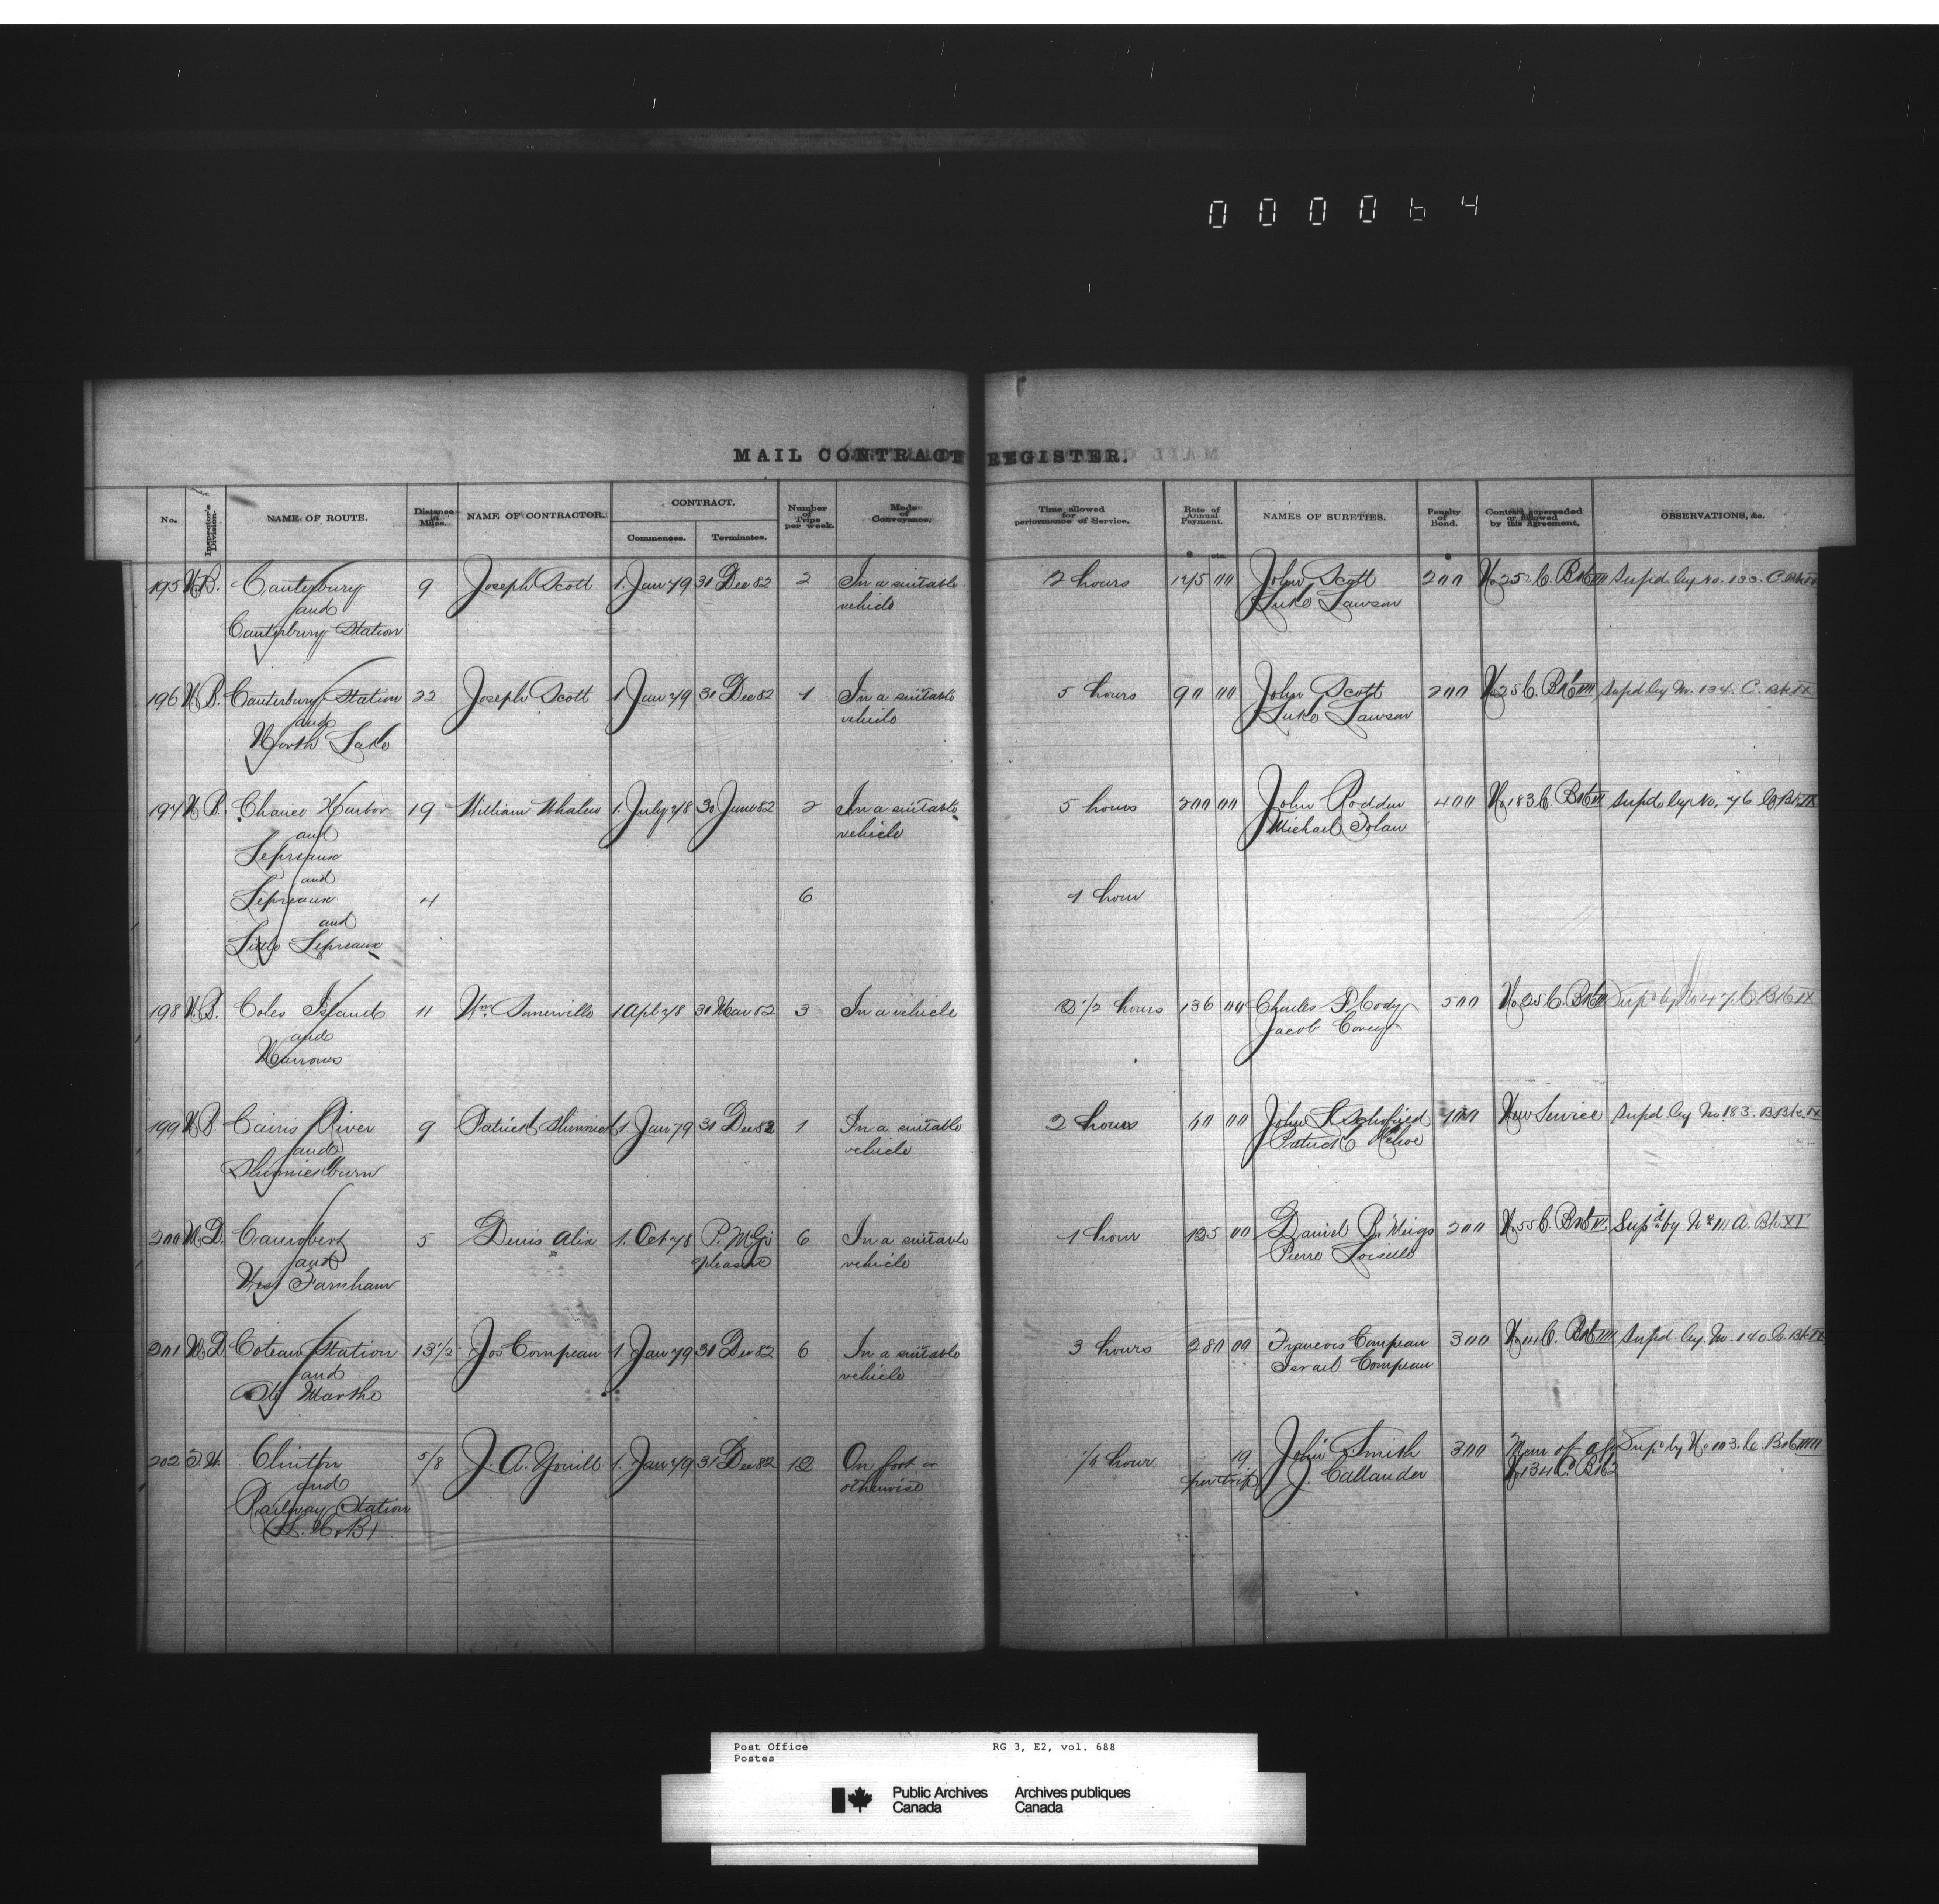 000064
MAIL CONTRACT REGISTER.
No. Inspector's Division. NAME OF ROUTE. Distance in Miles. NAME OF CONTRACTOR. CONTRACT. Commences. Terminates. Number of Trips per week. Mode of Conveyance. Time allowed for performance of Service. Rate of Annual Payment. $ cts. NAMES OF SURETIES. Penalty of Bond. $ Contract superseded or followed by this Agreement. OBSERVATIONS, &c.
195 N.B. Canterbury 9 Joseph Scott 1. Jan 79 31 Dec 82 2 In a suitable 2 hours 145 00 John Scott 200 No 25 C. Bk Supd by No. 133. C. Bk IX
and vehicle Luke Lawson
Canterbury Station
196 N.B. Canterbury Station 22 Joseph Scott 1 Jan 79 31 Dec 82 1 In a suitable 5 hours 90 00 John Scott 200 No 25 C. Bk Supd by No. 134. C. Bk IX
and vehicle Luke Lawson
North Lake
197 N.B. Chance Harbor 19 William Whalen 1. July 78 30 June 82 2 In a suitable 5 hours 200 00 John Rodden 400 No 183 C. Bk Supd by No. 76 C. Bk IX
and vehicle Michael Tolan
Lepreaux
and
Lepreaux 4 6 1 hour
and
Little Lepreaux
198 N.B. Coles Island 11 Wm. Somerville 1 Apl 78 31 Mar 82 3 In a vehicle 2 1/2 hours 136 00 Charles F. Cody 500 No 25 C. Bk Supd by No 47 C Bk IX
and Jacob Corey
Narrows
199 N.B. Cains River 9 Patrick Shinnick 1. Jan 79 31 Dec 82 1 In a suitable 2 hours 60 00 John Schofield 100 New Service Supd by No 183. B Bk IX
and vehicle Patrick Kehoe
Shinnicksburn
200 M.D. Canrobert 5 Denis Alix 1. Oct 78 P.M.G's 6 In a suitable 1 hour 125 00 Daniel B. Meigs 200 No 55 C. Bk V. Supd by No 111 A. Bk XI
and pleasure vehicle Pierre Loiselle
West Farnham
201 M.D. Coteau Station 13 1/2 Jos Compeau 1. Jan 79 31 Dec 82 6 In a suitable 3 hours 280 00 Francois Compeau 300 C. Bk Supd by No. 140 C. Bk IX
and vehicle Israel Compeau
Ste Marthe
202 Clinton 5/8 J. A. Youill 1. Jan 79 31 Dec 82 12 On foot or 1/4 hour 19 John Smith 300 Mem of ag Supd by No 103. C. Bk
and otherwise per trip J. Callander No 134 C. Bk 2
Railway Station
Post Office RG 3, E2, vol. 688
Postes
Public Archives Archives publiques
Canada Canada